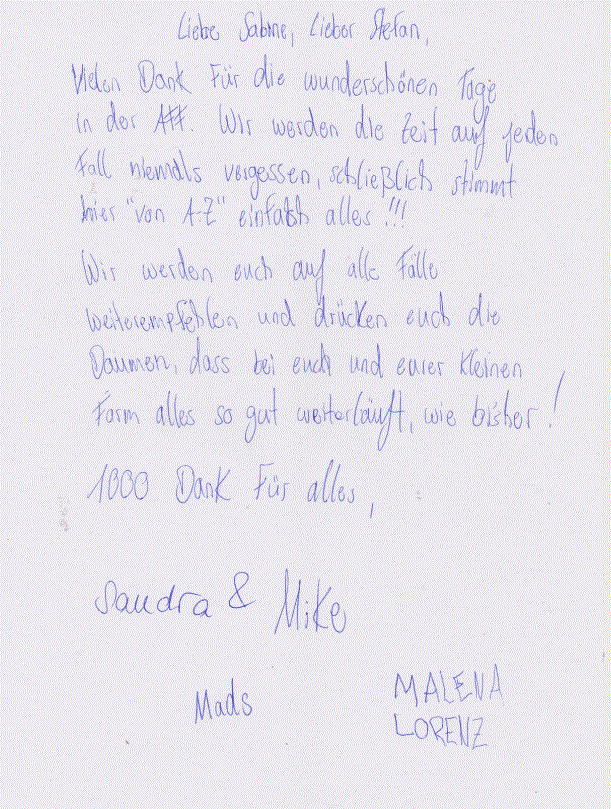 Liebe Sabine, Lieber Stefan,
Vielen Dank Für die wunderschönen Tage
in der A##. Wir werden die Zeit auf jeden
Fall niemals vergessen, schließlich stimmt
hier "von A-Z" einfach alles!!!
Wir werden euch auf alle Fälle
weiterempfehlen und drücken euch die
Daumen, dass bei euch und eurer kleinen
Farm alles so gut weiterläuft, wie bisher!
1000 Dank Für alles,
Sandra & Mike
Mads
MALENA
LORENZ